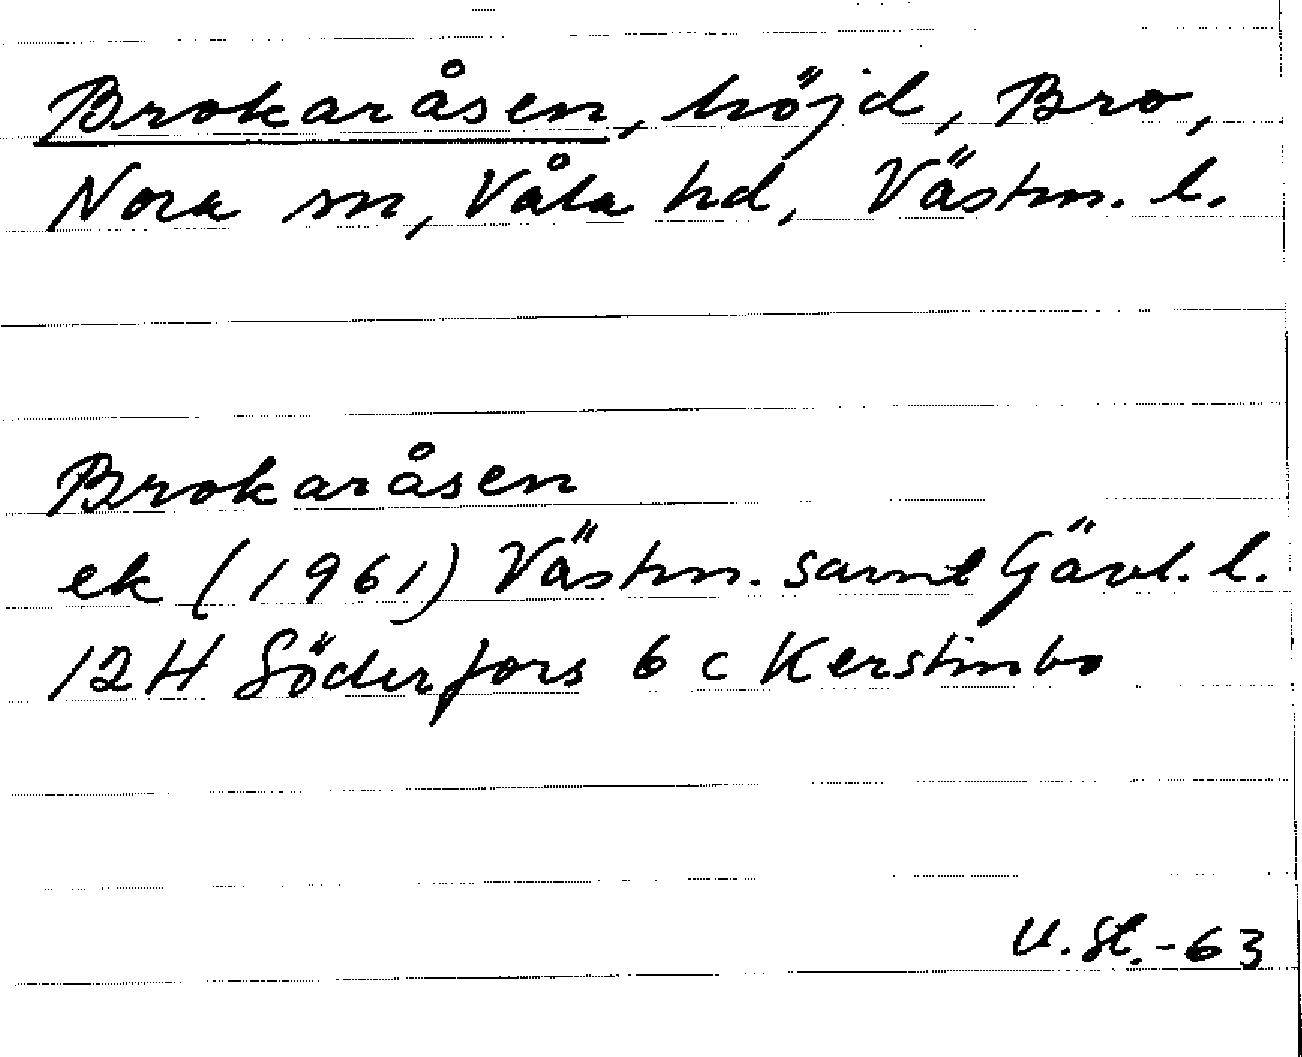 Brokaråsen, höjd, Bro,
Nora sn, Våla hd, Västm. l.
Brokaråsen
ek (1961) Västm. samt Gävl. l.
12H Söderfors 6 c Kerstinbo
U. St. -63